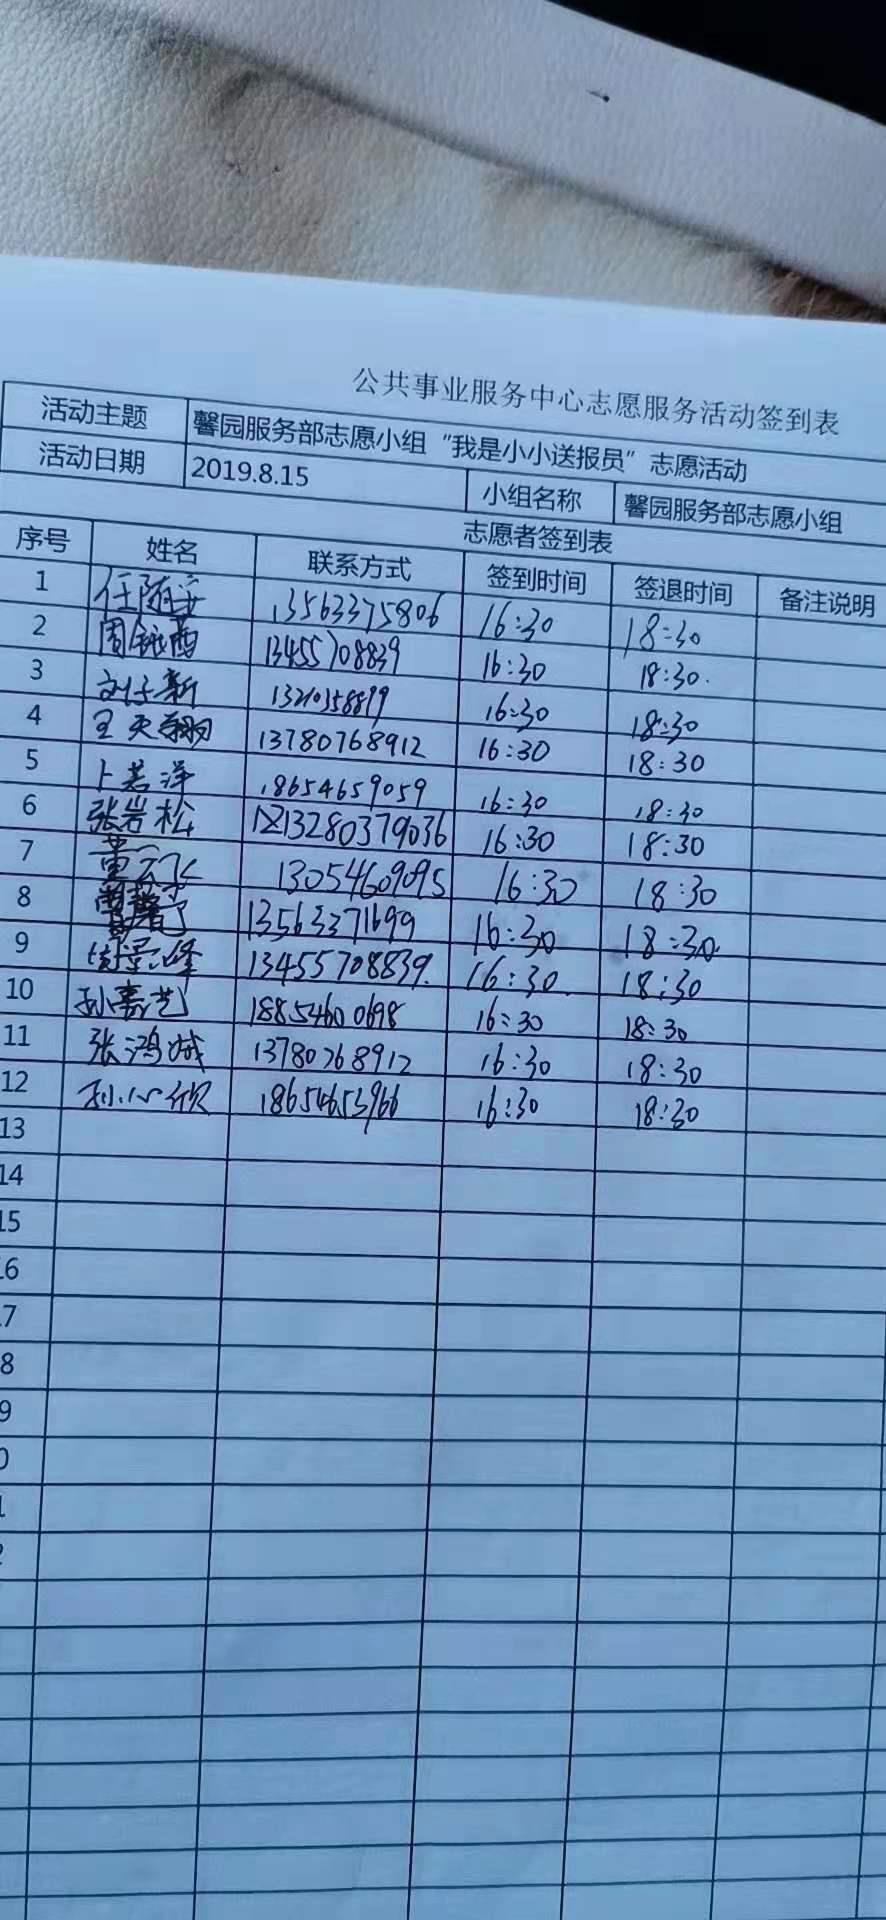 公共事业服务中心志愿服务活动签到表
活动主题 馨园服务部志愿小组“我是小小送报员”志愿活动
活动日期 2019.8.15 小组名称 馨园服务部志愿小组
志愿者签到表
序号 姓名 联系方式 签到时间 签退时间 备注说明
1 13563375806 16:30 18:30
2 13455708839 16:30 18:30.
3 16:30 18:30
4 王天翱 13780768912 16:30 18:30
5 卜若洋 18654659059 16:30 18:30
6 张岩松 13280379036 16:30 18:30
7 13054609095 16:30 18:30
8 13563371699 16:30 18:30
9 13455708839. 16:30 18:30
10 孙嘉艺 18854600698 16:30 18:30
11 张鸿城 13780768912 16:30 18:30
12 孙心欣 18654653966 16:30 18:30
13
14
15